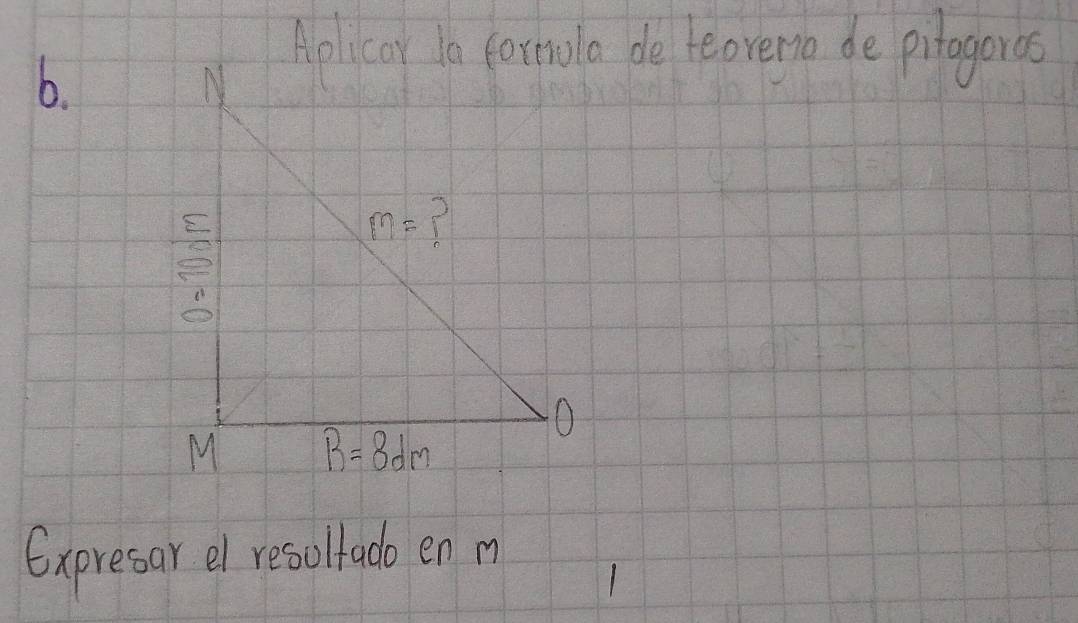 Aplicar la formula de teorema de pitagoras
b.
N
m = ?
M
B = 8dm
O
Expresar el resultado en m